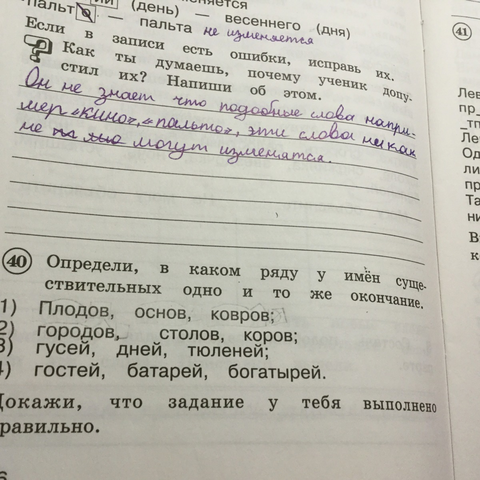 ий (день) — весеннего (дня)
пальто — пальта не изменяется
Если в записи есть ошибки, исправь их.
Как ты думаешь, почему ученик допу-
стил их? Напиши об этом.
Он не знает что подобные слова напри-
мер «кино», «пальто», эти слова никак
не могут изменятся.
40 Определи, в каком ряду у имён суще-
ствительных одно и то же окончание.
1) Плодов, основ, ковров;
2) городов, столов, коров;
3) гусей, дней, тюленей;
4) гостей, батарей, богатырей.
Докажи, что задание у тебя выполнено
равильно.
41
Лев
пр_
_тп
Ле
Од
ли
пр
Та
ни
В
к